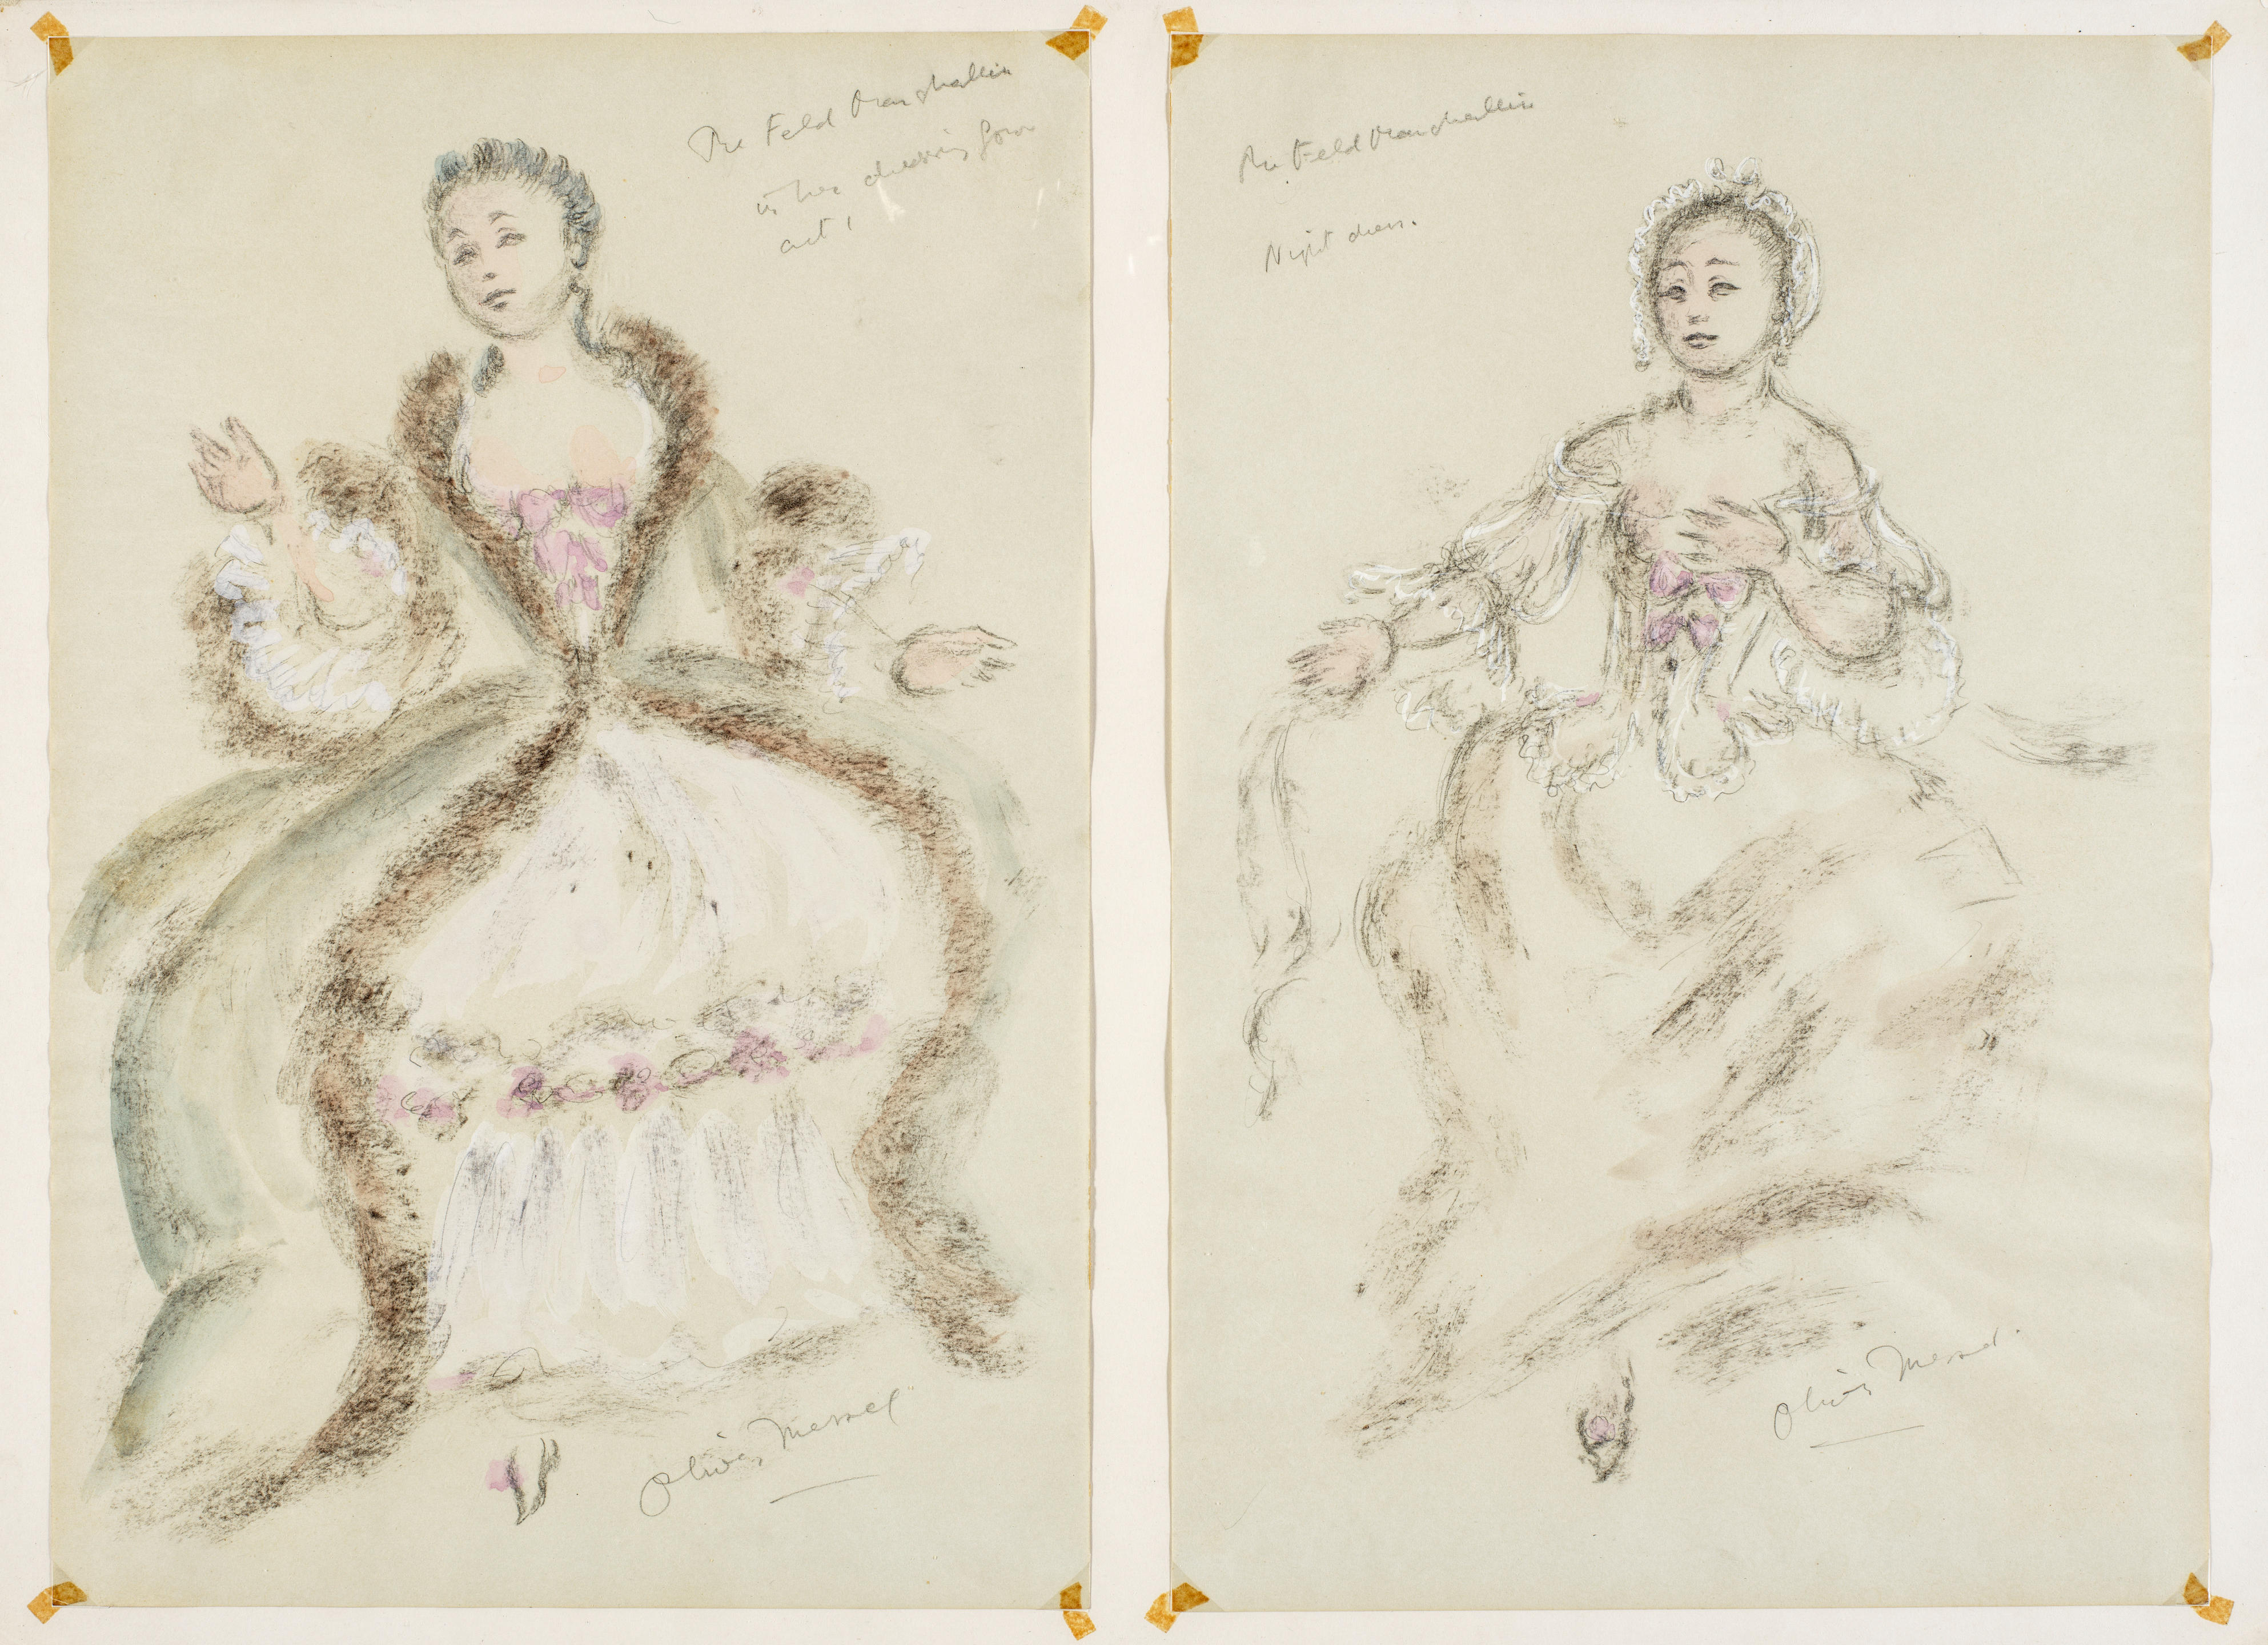 The Feld Marshallin
in her dressing gown
act 1
Oliver Messel
The Feld Marshallin
Night dress.
Oliver Messel